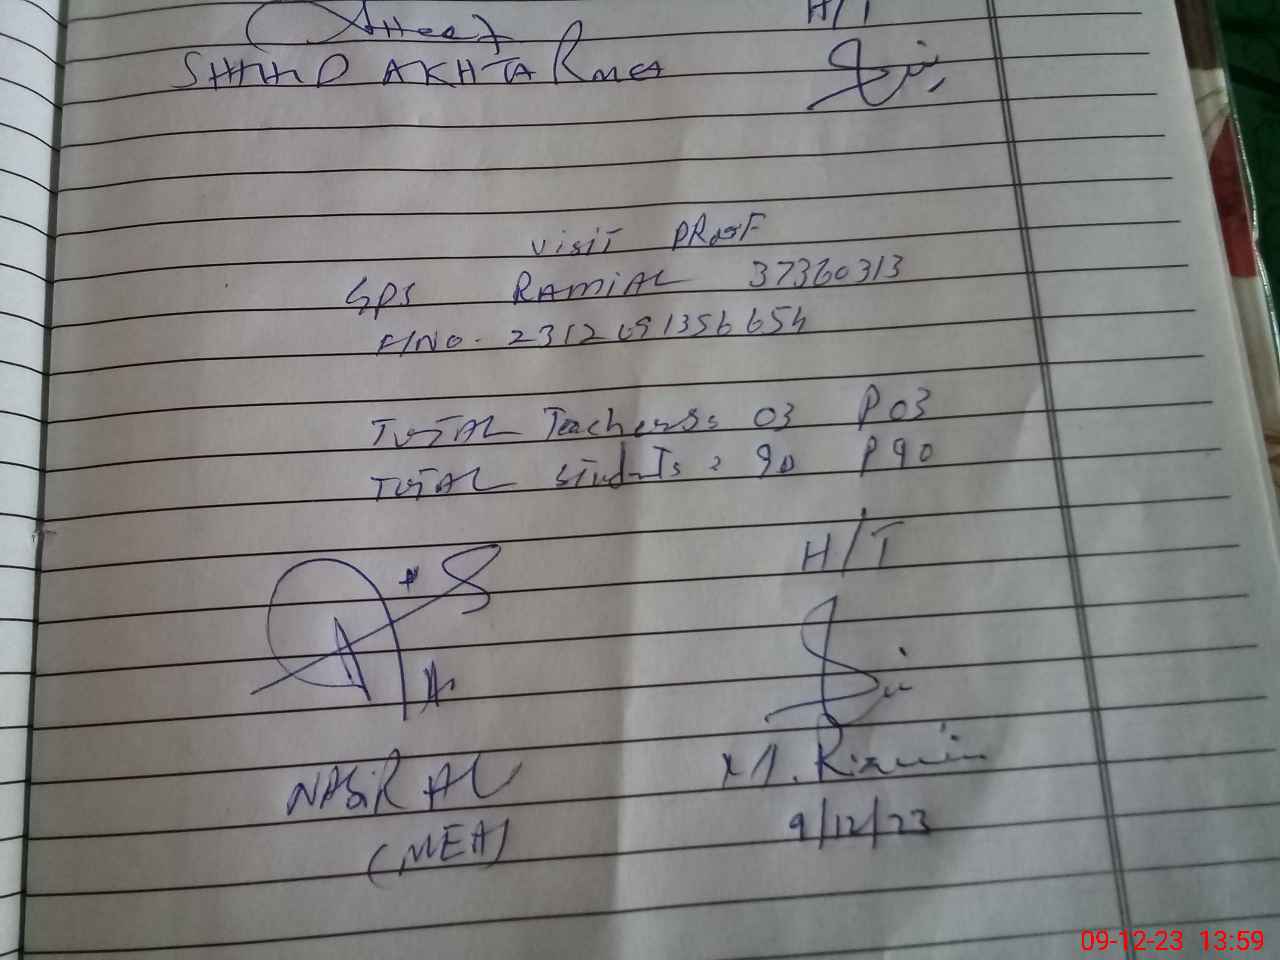 H/T
AKHTAR MEA
Visit PRooF
GPS RAMIAL 37360313
F/NO. 2312091356654
TOTAL Teachers: 03 P 03
TOTAL Students: 90 P 90
H/T
NASIR ALI
(MEA)
9/12/23
09-12-23 13:59